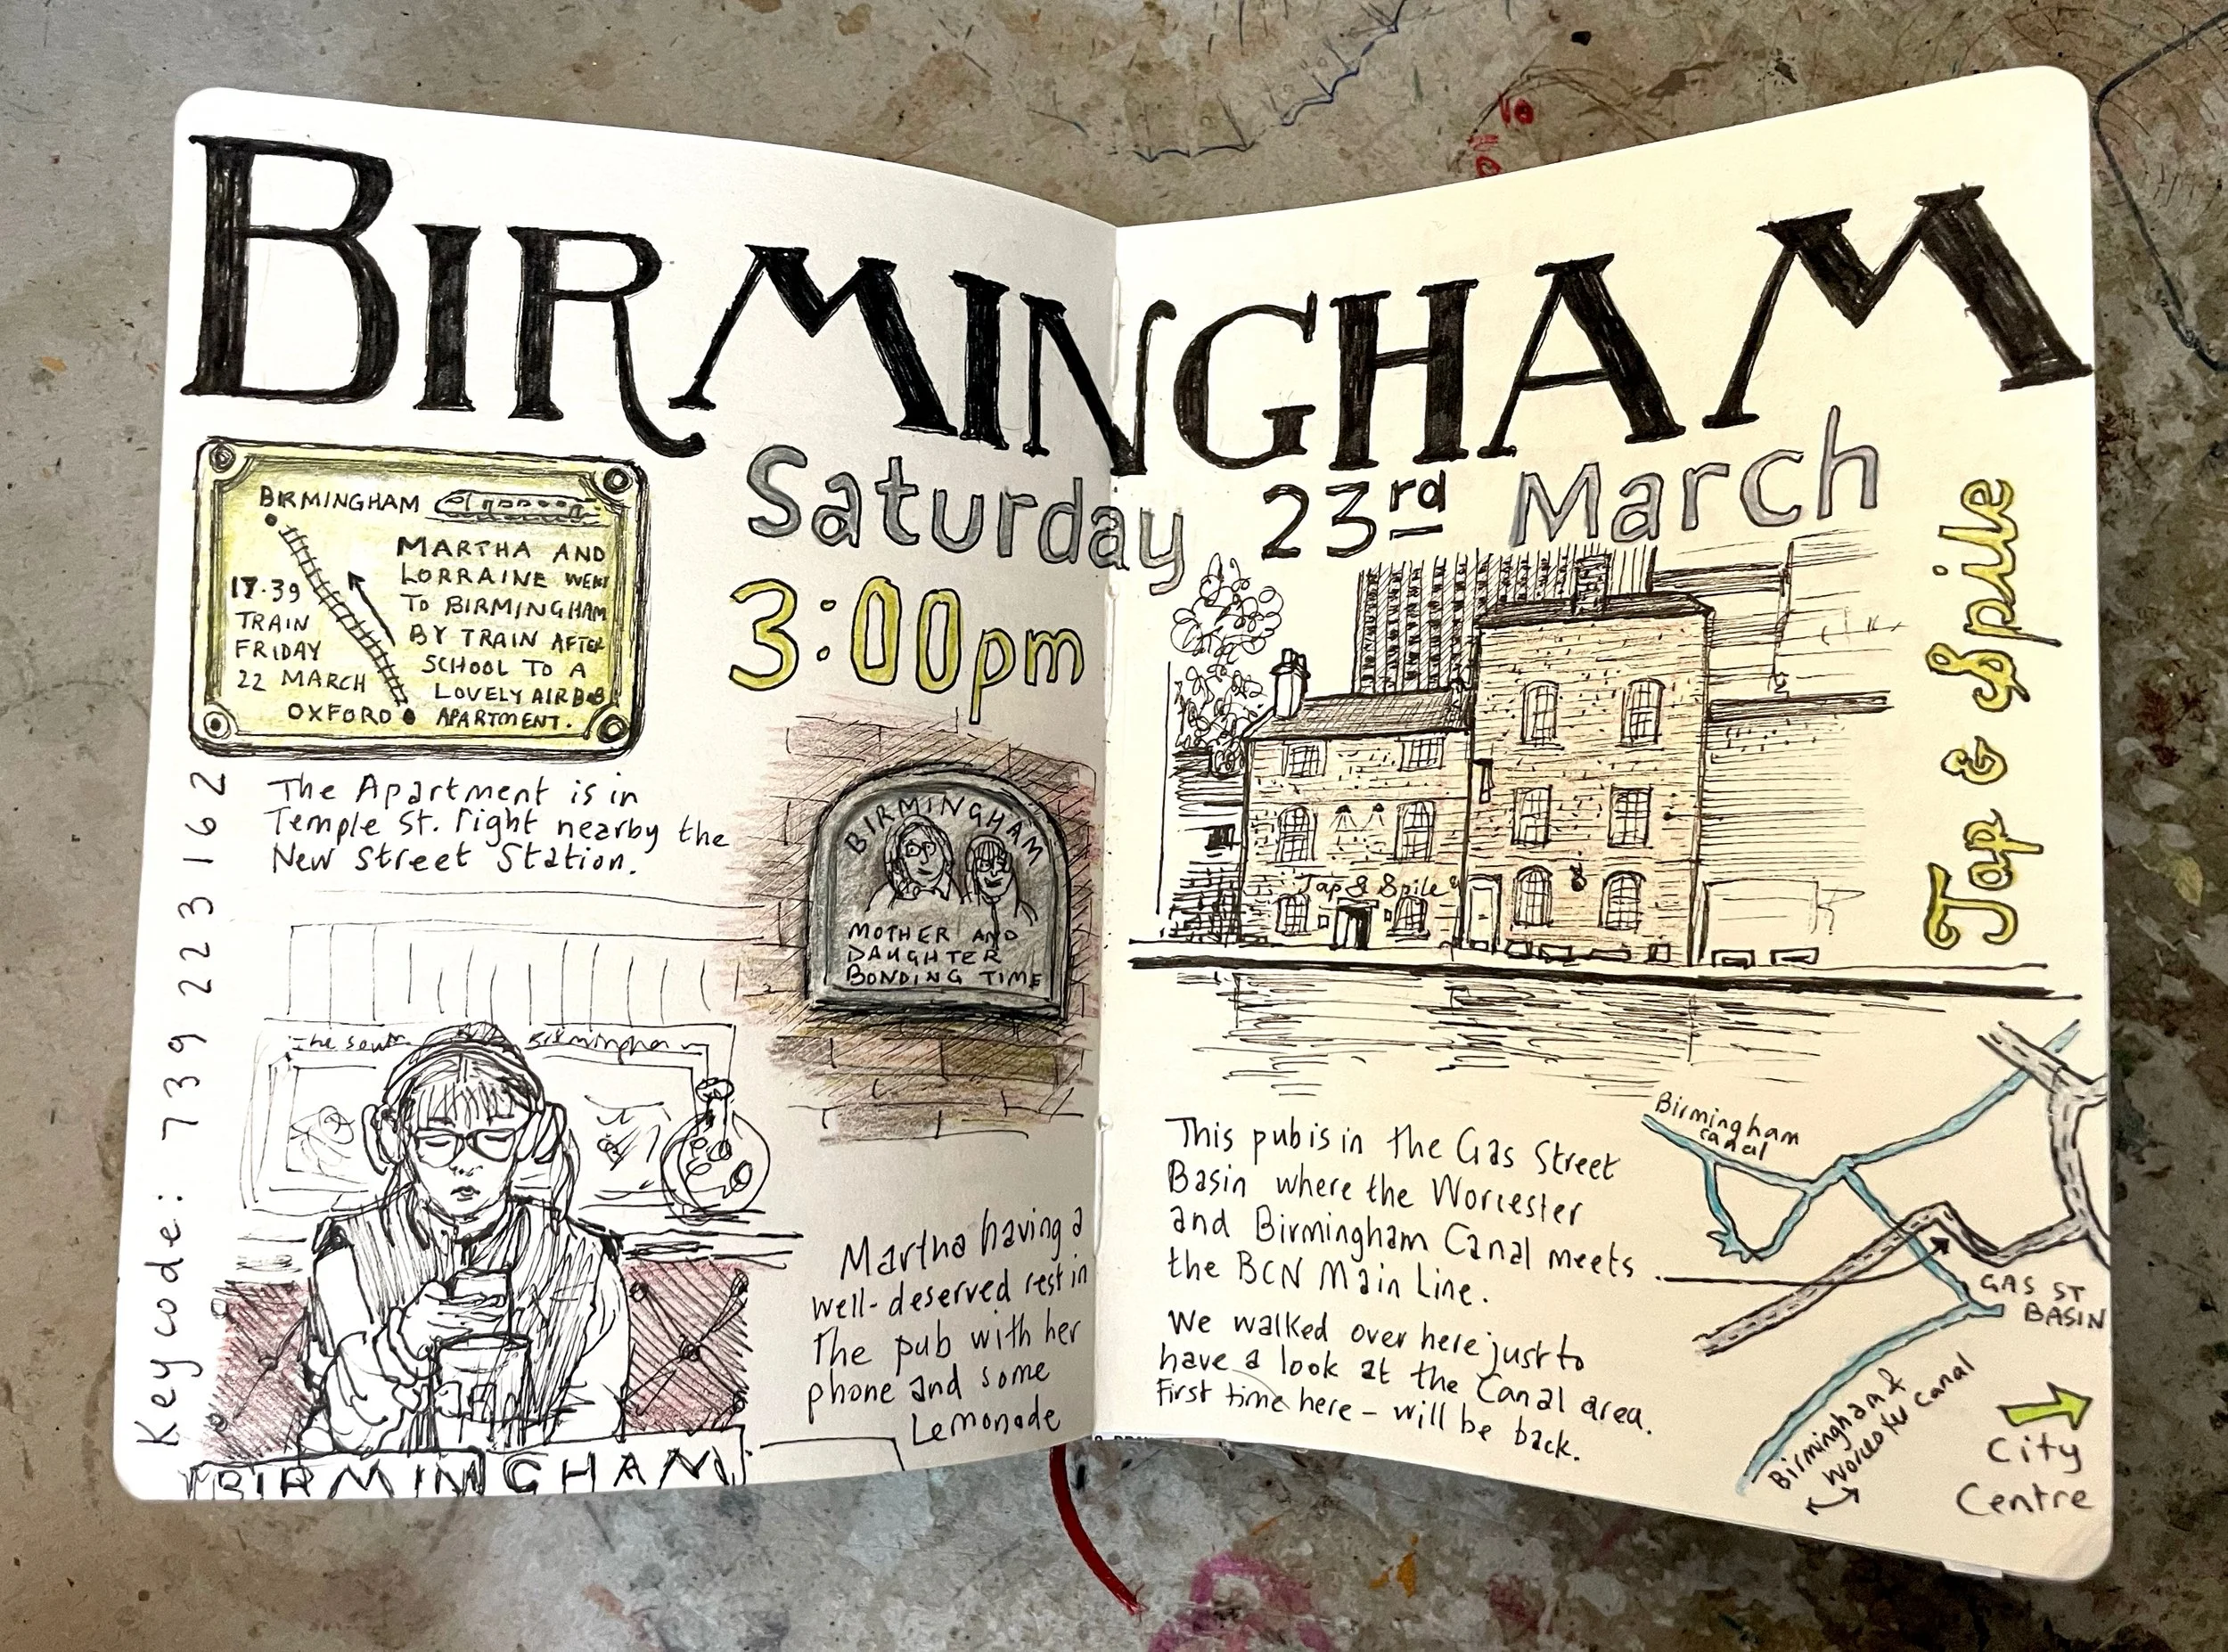 BIRMINGHAM
Saturday 23rd March
3:00pm
BIRMINGHAM
MARTHA AND
LORRAINE WENT
TO BIRMINGHAM
BY TRAIN AFTER
SCHOOL TO A
LOVELY AIRBNB
APARTMENT.
17.39
TRAIN
FRIDAY
22 MARCH
OXFORD
The Apartment is in
Temple St. right nearby the
New Street Station.
Keycode: 739 223 162
BIRMINGHAM
MOTHER AND
DAUGHTER
BONDING TIME
The South
Birmingham
BIRMINGHAM
Martha having a
well-deserved rest in
The pub with her
phone and some
Lemonade
Tap & Spile
Tap & Spile
This pub is in the Gas Street
Basin where the Worcester
and Birmingham Canal meets
the BCN Main Line.
We walked over here just to
have a look at the Canal area.
First time here - will be back.
Birmingham
canal
GAS ST
BASIN
Birmingham &
Worcester Canal
City
Centre